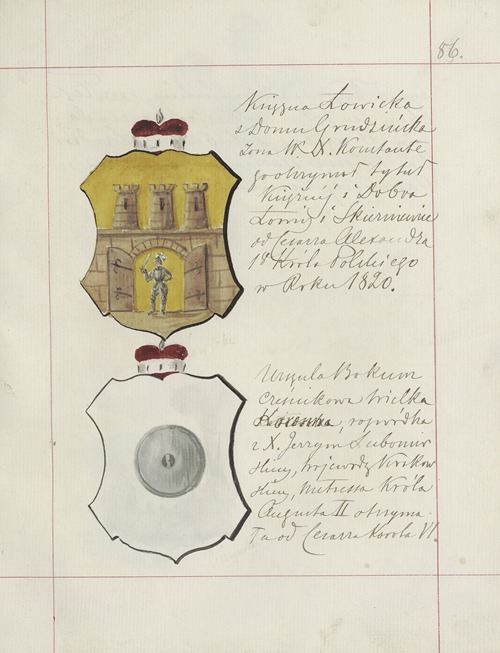 86.
Księżna Łowicka
z Domu Grudzińska
żona W. X. Konstante
go otrzymał tytuł
Księżnej i Dobra
Łowicz i Skierniewice
od Cesarza Alexandra
1º Króla Polskiego
w Roku 1820.
Urszula Bokum
cześnikowa Wielka
Koronna, rozwódka
z X. Jerzym Lubomir
skim, Wojewodą Krakow
skim, Metressa Króla
Augusta II otrzyma
ła od Cesarza Karola VI.